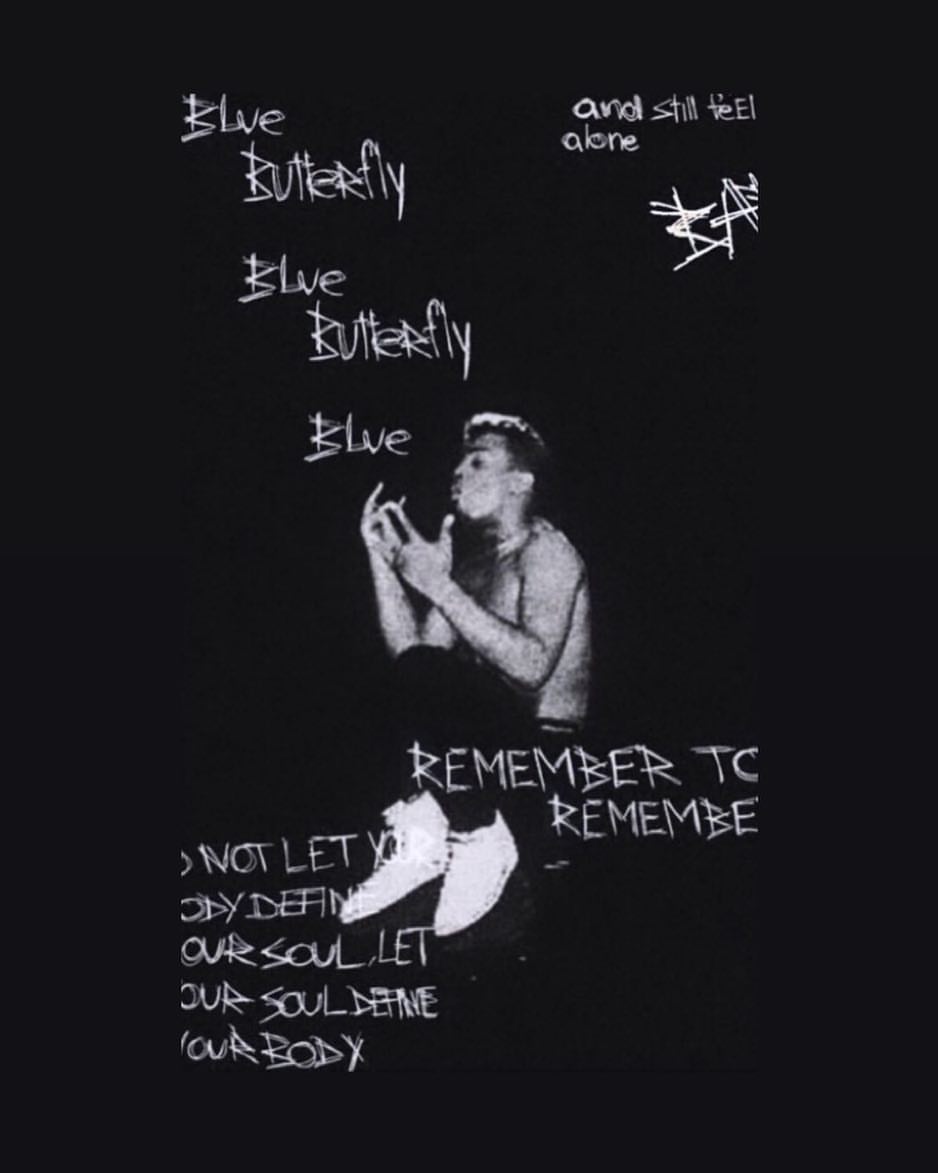 Blue
Butterfly
Blue
Butterfly
Blue
and still feel
alone
REMEMBER TO
REMEMBE
NOT LET YOUR
ODY DEFINE
OUR SOUL, LET
OUR SOUL DEFINE
YOUR BODY